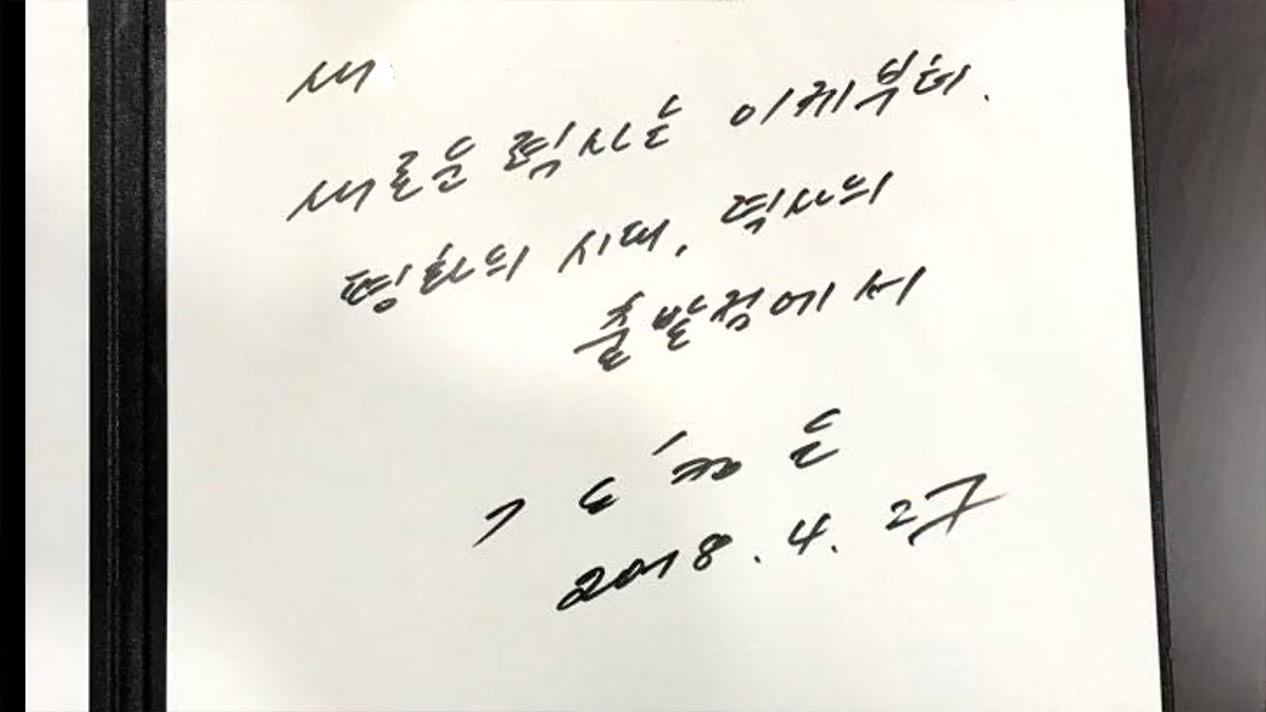 새
새로운 력사는 이제부터.
평화의 시대, 력사의
출발점에서
김정은
2018. 4. 27